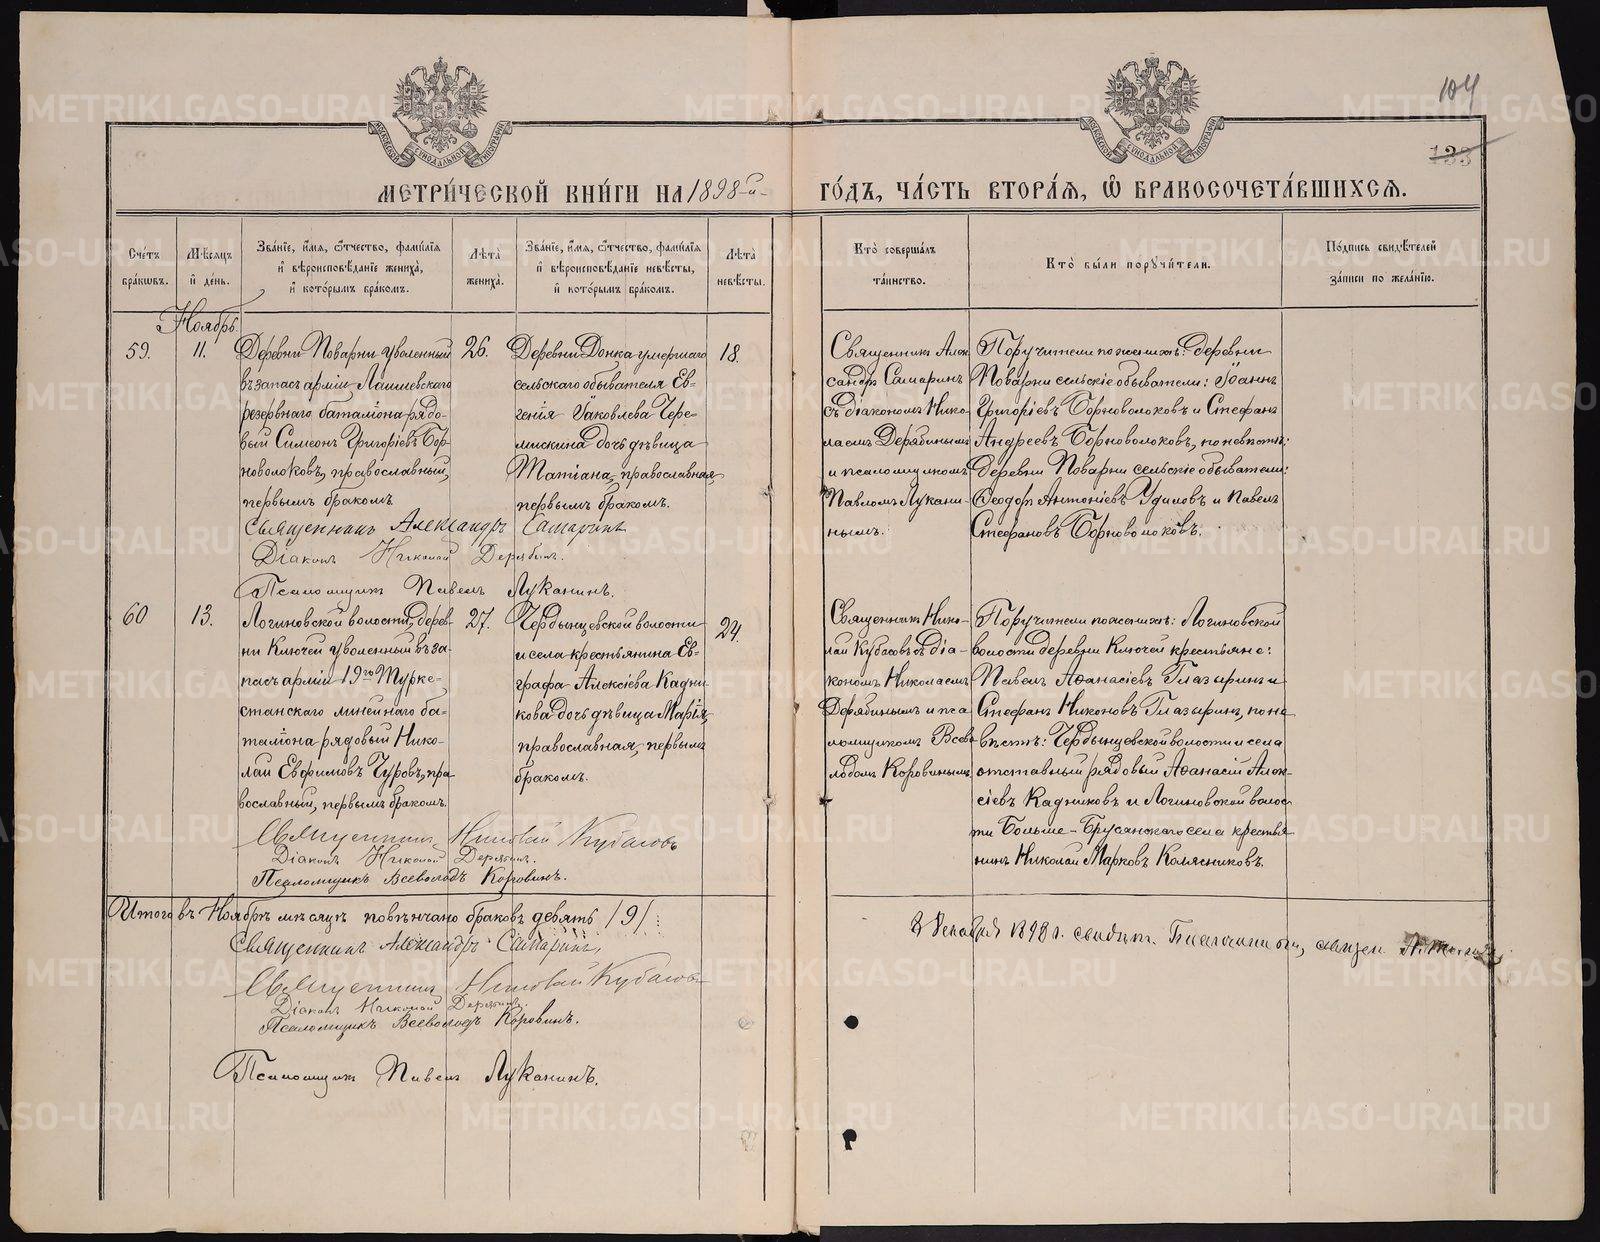 104
133
МОСКОВСКОЙ СУНОДАЛЬНОЙ ТИПОГРАФІИ
МОСКОВСКОЙ СУНОДАЛЬНОЙ ТИПОГРАФІИ
МЕТРИ́ЧЕСКОЙ КНИ́ГИ НА 1898-й-
ГО́ДЪ, ЧА́СТЬ ВТОРА́Я, Ѽ БРАКОСОЧЕТА́ВШИХСЯ.
Сче́тъ бра́кѡвъ.
Мѣ́сяцъ и де́нь.
Зва́нїе, и́мя, ѻ́тчество, фами́лїя и вѣроисповѣ́данїе жениха̀, и кото́рымъ бра́комъ.
Лѣта̀ жениха̀.
Зва́нїе, и́мя, ѻ́тчество, фами́лїя и вѣроисповѣ́данїе невѣ́сты, и кото́рымъ бра́комъ.
Лѣта̀ невѣ́сты.
Кто̀ соверша́лъ та́инство.
Кто̀ бы́ли порꙋчи́тели.
По́дпись свидѣ́телей за́писи по жела́нїю.
Ноябрь.
59.
11.
Деревни Поварни уволенный
въ запасъ арміи Лаишевскаго
резервнаго баталіона рядо-
вый Симеонъ Григоріевъ Бор-
новолоковъ, православный,
первымъ бракомъ.
26.
Деревни Донка умершаго
сельскаго обывателя Ев-
генія Іаковлева Чере-
мискина дочь дѣвица
Татіана, православная,
первымъ бракомъ.
18.
Священникъ Алек
сандръ Самаринъ
съ діакономъ Нико-
лаемъ Дерябинымъ
и псаломщикомъ
Павломъ Лукани-
нымъ.
Поручители по женихѣ: деревни
Поварни сельскіе обыватели: Іоаннъ
Григоріевъ Борноволоковъ и Стефанъ
Андреевъ Борноволоковъ, по невѣстѣ:
деревни Поварни сельскіе обыватели:
Ѳеодоръ Антоніевъ Удиловъ и Павелъ
Стефановъ Борноволоковъ.
Священникъ Александръ Самаринъ
Діаконъ Николай Дерябинъ.
Псаломщикъ Павелъ Луканинъ.
60
13.
Логиновской волости, дерев-
ни Ключей уволенный въ за-
пасъ арміи 19го Турке-
станскаго линейнаго ба-
таліона рядовый Нико-
лай Евфимовъ Чуровъ, пра-
вославный, первымъ бракомъ.
27.
Чердынцевской волости
и села крестьянина Ев-
графа Алексіева Кадни-
кова дочь дѣвица Марія,
православная, первымъ
бракомъ.
24.
Священникъ Нико-
лай Кубасовъ съ діа-
кономъ Николаемъ
Дерябинымъ и пса
ломщикомъ Всево
лодомъ Коровинымъ.
Поручители по женихѣ: Логиновской
волости деревни Ключей крестьяне:
Павелъ Аѳанасіевъ Глазыринъ и
Стефанъ Никоновъ Глазыринъ, по не
вѣстѣ: Чердынцевской волости и села
отставный рядовый Аѳанасій Алек-
сіевъ Кадниковъ и Логиновской волос
ти Больше-Брусянскаго села крестья
нинъ Николай Марковъ Колясниковъ.
Священникъ Николай Кубасовъ
Діаконъ Николай Дерябинъ.
Псаломщикъ Всеволодъ Коровинъ.
Итого въ Ноябрѣ мѣсяцѣ повѣнчано браковъ девять /9/
Священникъ Александръ Самаринъ,
Священникъ Николай Кубасовъ
Діаконъ Николай Дерябинъ.
Псаломщикъ Всеволодъ Коровинъ.
Псаломщикъ Павелъ Луканинъ.
Декабря 1898 г. свидѣт. Благочинный, священ.
METRIKI.GASO-URAL.RU